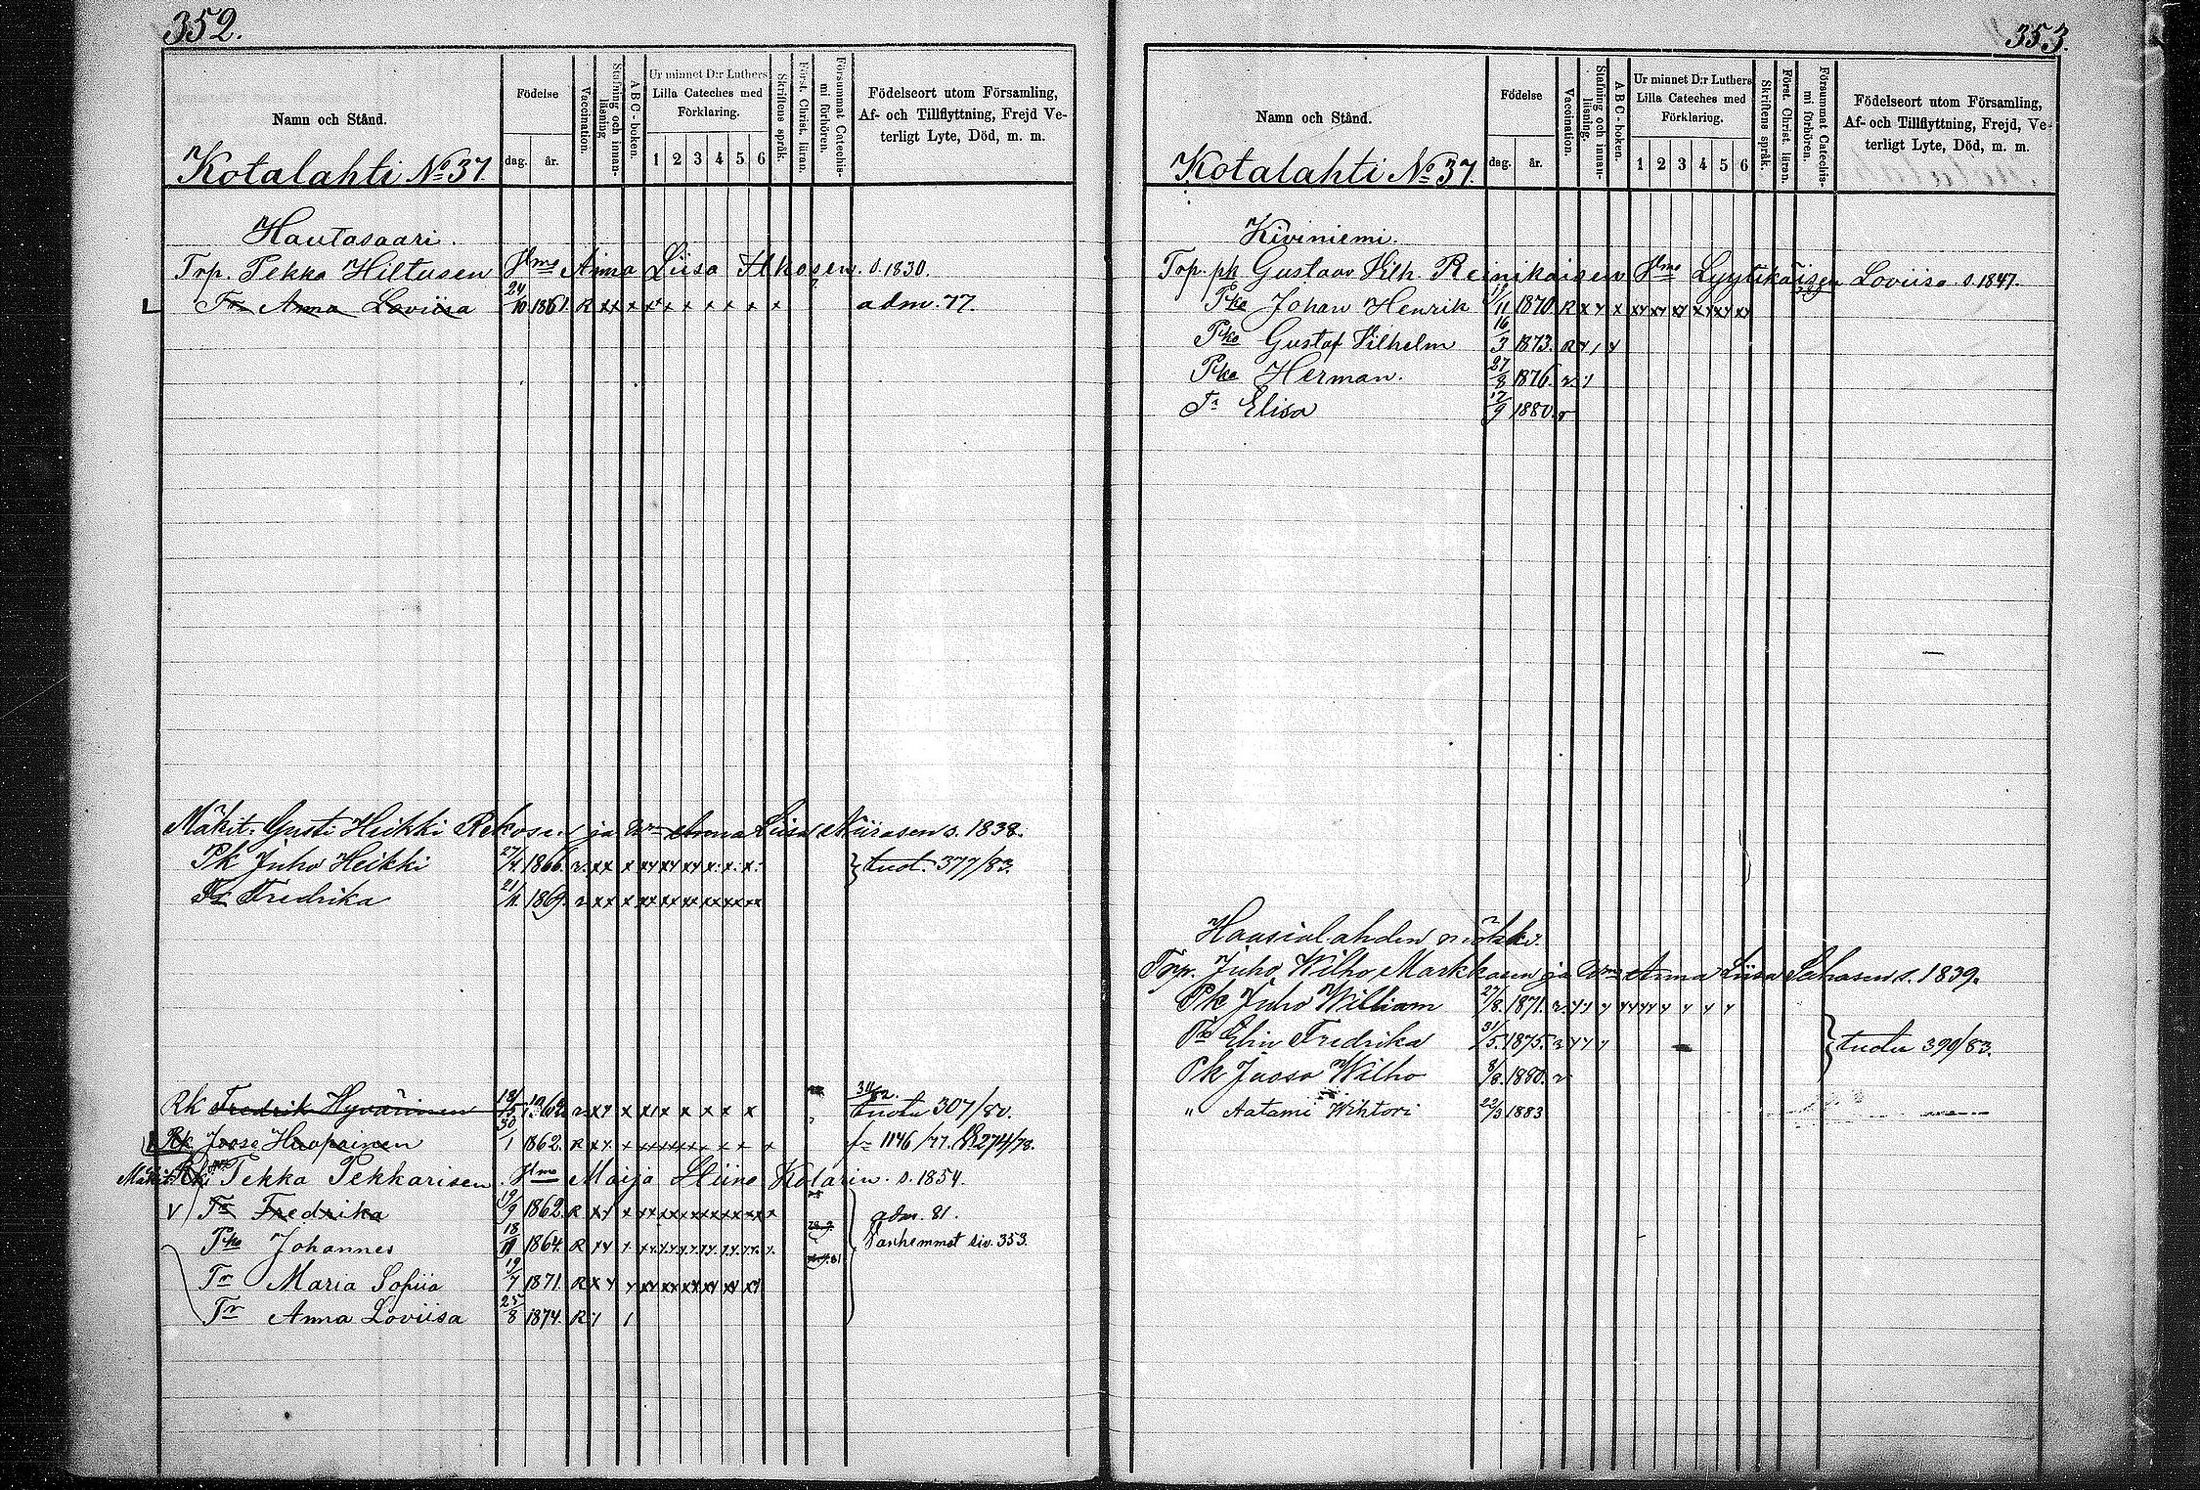 352.
Namn och Stånd.
Födelse
dag. år.
Vaccination.
Stafning och innan-
läsning
A B C - boken.
Ur minnet D:r Luthers
Lilla Cateches med
Förklaring.
1 2 3 4 5 6
Skriftens språk.
Först. Christ. läran.
Försummat Catechis-
mi förhören.
Födelseort utom Församling,
Af- och Tillflyttning, Frejd Ve-
terligt Lyte, Död, m. m.
Kotalahti No 37.
Hautasaari.
Trp. Pekka Hiltusen Anna Liisa s. 1830.
L Tr Anna Loviisa 24/10 1861. R xx x x x x x x x x adm. 77.
Mäkit. Gusti Heikki Rekosen ja Wm Anna Liisa Niirasen s. 1838.
Pk Juho Heikki 27/4. 1866. } tuot. 377/83.
Tr Fredrika 1869.
Rk Fredrik Hyvärinen tuotu 307/80.
Rk Jooso Haapainen 30/1 1862. 1146/77. 274/78.
Mäkit. Pekka Pekkarisen Maija Stiina s. 1854.
V Tr Fredrika 19/9 1862. adm. 81.
Pka Johannes 18/11 1864. Vanhemmat siv. 353.
Tr Maria Sofiia 19/7 1871.
Tr Anna Loviisa 25/8 1874.
353.
Namn och Stånd.
Födelse
dag. år.
Vaccination.
Stafning och innan-
läsning.
A B C - boken.
Ur minnet D:r Luthers
Lilla Cateches med
Förklaring.
1 2 3 4 5 6
Skriftens språk.
Först. Christ. läran.
Försummat Catechis-
mi förhören.
Födelseort utom Församling,
Af- och Tillflyttning, Frejd, Ve-
terligt Lyte, Död, m. m.
Kotalahti No 37.
Kiviniemi.
Trp. pk Gustaav Vilh. Reinikaisen Lyytikäisen Loviisa s. 1847.
Pka Johan Henrik 1870.
Pka Gustaf Vilhelm 16/3 1873.
Pka Herman. 27/8 1876.
Tr Elisa 17/9 1880.
Haasialahden mökki.
Trp. Juho Wilho Markkasen ja Wm Anna Liisa s. 1839.
Pk Juho William 27/8. 1871.
Elin Fredrika 31/5. 1875. } tuotu 390/83.
Pk Jooso Wilho 8/8. 1880.
" Aatami Wihtori 22/3 1883